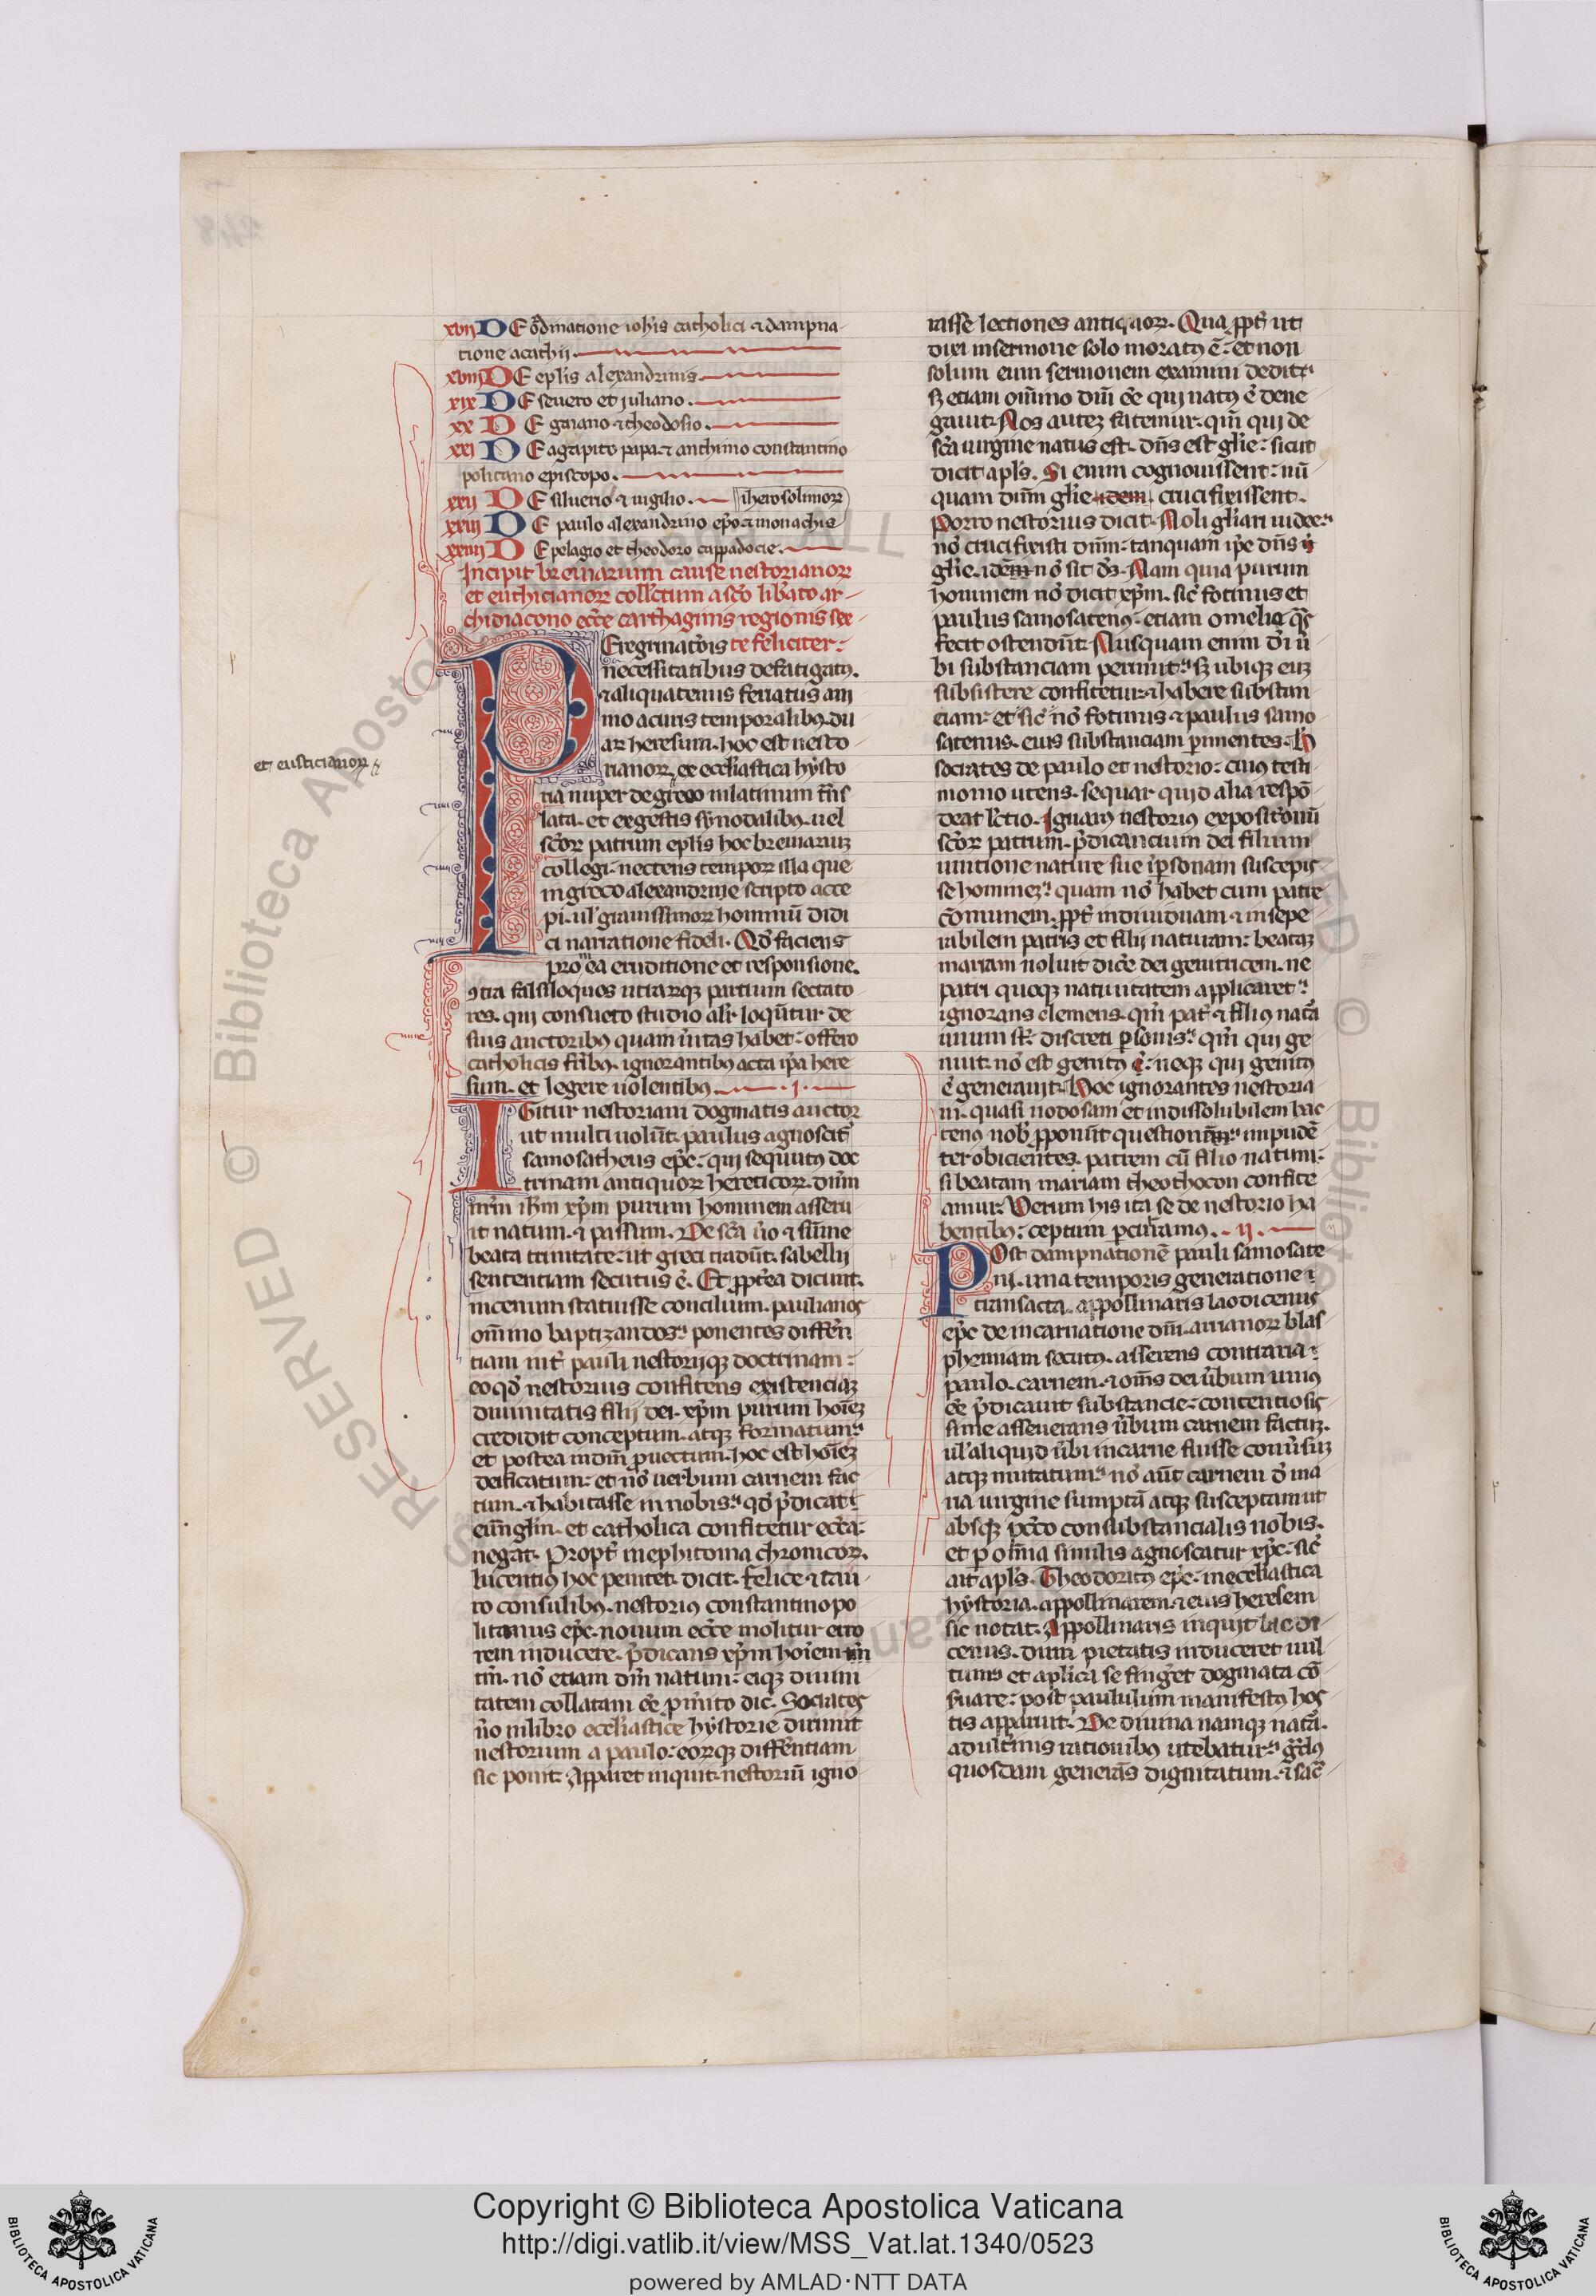 xvii DE ordinatione ioh'is catholici ⁊ dampna-
tione acathii.
xviii DE ep'lis alexandrinis.
xix DE seuero et juliano.
xx DE gaiano ⁊ theodosio.
xxi DE agapito papa ⁊ anthimo constantino
politano episcopo.
xxii DE siluerio ⁊ uigilio. iherosolimoꝝ
xxiii DE paulo alexandrino ep̄o ⁊ monachis
xxiiii DE pelagio et theodoro cappadocie.
Incipit breuiarium cause nestorianoꝝ
et euthicianoꝝ coll'ctum a sc̄o lib'ato ar-
chidiacono ecc̄e carthaginis regionis sex-
Peregrinat'ois te feliciter:
necessitatibus defatigatꝰ.
⁊ aliquatenus feriatus ani
mo a curis temporalibꝰ. du
aꝝ heresum. hoc est nesto
rianoꝝ, ex eccl'iastica hysto
et eusticianoꝝ
ria nuper de greco in latinum t̄ns
lata. et ex gestis synodalibꝰ. uel
sc̄oꝝ patrum ep'lis hoc breuiariuꝫ
collegi. nectens tempoꝝ illa que
in greco alexandrine scripto acce
pi. ul' grauissimoꝝ hominū didi
ci narratione fideli. Qd' faciens
pro mea eruditione et responsione.
ꝯtra falsiloquos utrarūqꝫ partium sectato
res. qui consueto studio alr̄ loquūtur de
suis auctoribꝰ quam u'itas habet: offero
catholicis fr̄ibꝰ. ignorantibꝰ acta ip̄a here
sum. et legere uolentibꝰ. .j.
IGitur nestoriani dogmatis auctor
ut multi uolūt. paulus agnoscit'
samosatheus ep̄c: qui sequutꝰ doc
trinam antiquoꝝ hereticoꝝ. dn̄m
nr̄m ih̄m xp̄m purum hominem asseru
it natum. ⁊ passum. De sc̄a u'o ⁊ sūme
beata trinitate. ut greci tradūt. sabellij
sententiam secutus ē. Et ꝓpt'ea dicunt.
nicenum statuisse concilium. paulianos
om̄ino baptizandos: ponentes diffe'n
tiam int' pauli nestorijqꝫ doctrinam:
eo qd' nestorius confitens existenciaꝫ
diuinitatis filij dei. xp̄m purum hoīeꝫ
credidit conceptum. atqꝫ formatum:
et postea in dm̄ ꝓuectum. hoc est hoīeꝫ
deificatum: et nō uerbum carnem fac
tum. ⁊ habitasse in nobis: qd' p̄dicat
euāngliū. et catholica confitetur ecc̄a:
negat. Propt' in ephitoma chronicoꝝ.
lucentiꝰ hoc penitet. dicit. felice ⁊ tau-
ro consulibꝰ. nestoriꝰ constantinopo
litanus ep̄c. nouum ecc̄e molitur erro
rem inducere. p̄dicans xp̄m hoīem
tm̄. nō etiam dm̄ natum: eiqꝫ diuini
tatem collatam ēē p̄ m'ito dic. Socrates
u'o in libro eccl'iastice hystorie dirimit
nestorium a paulo: eorūqꝫ diffe'ntiam
sic ponit. Apparet inquit. nestoriū igno
rasse lectiones antiquoꝝ. Qua ꝓpt' ut
dixi in sermone solo moratꝰ ē: et non
solum eum sermonem examini dedit:
sꝫ etiam om̄ino dm̄ ēē qui natꝰ ē dene
gauit. Nos auteꝫ fatemur. qm̄ qui de
sc̄a uirgine natus est. dn̄s est gl'ie: sicut
dicit apl's. Si enim cognouissent: nū
quam dn̄m gl'ie crucifixissent.
Porro nestorius dicit. Noli gl'iari iudee:
nō crucifixisti dn̄m: tanquam ip̄e dn̄s
gl'ie. idem nō sit ds̄. Nam quia purum
hominem nō dicit xp̄m. sic fotinus et
paulus samosatenꝰ. etiam omelie qs̄
fecit ostendūt. Nusquam enim dī u'
bi substanciam perimit: sꝫ ubiqꝫ euꝫ
subsistere confitetur ⁊ habere substan
ciam: et sic nō fotinus ⁊ paulus samo
satenus. eius substanciam p̄imentes. H
socrates de paulo et nestorio: cuiꝰ testi
monio utens. sequar quid alia respō
deat l'ctio. Ignarꝰ nestoriꝰ expositōnū
sc̄oꝝ patrum. p̄dicancium dei filium
unitione nature sue in p̄sonam suscepis
se hominez: quam nō habet cum patre
cōmunem. ꝓpt' indiuiduam ⁊ insepe
rabilem patris et filij naturam: beataꝫ
mariam noluit dic'e dei genitricem. ne
patri quoqꝫ natiuitatem applicaret:
ignorans clemens. qm̄ pat' ⁊ filiꝰ nata
unum st': discreti p̄sonis: qm̄ qui ge
nuit. nō est genitꝰ: neqꝫ qui genitꝰ
ē generauit. Hoc ignorantes nestoria
ni. quasi nodosam et indissolubilem hac
tenꝰ nob' ꝓponūt question: inpudē
ter obicientes. patrem cū filio natum:
si beatam mariam theothocon confite
amur. Verum his ita se de nestorio ha
bentibꝰ: ceptum p̄curramus. .ij.
POst dampnationē pauli samosate
ni. una temporis generatione
transacta. appollinaris laodicenus
ep̄c de incarnatione dn̄i. arrianoꝝ blas
phemiam secutꝰ. asserens contraria
paulo. carnem. ⁊ om̄s dei u'bum unius
ēē p̄dicauit substancie: contentiosis
sime asseuerans u'bum carnem factuꝫ.
ul' aliquid u'bi in carne fuisse conu'suꝫ
atqꝫ mutatum: nō aut carnem d' ma
ria uirgine sumptā atqꝫ susceptam ut
absqꝫ pcc̄o consubstancialis nobis.
et p̄ om̄ia similis agnoscatur xp̄c: sic
ait apl's. Theodoritꝰ ep̄c. in eccl'iastica
hystoria. appollinarem. ⁊ eius heresem
sic notat. Appollinaris inquit laodi
cenus. dum pietatis induceret uul
tum et apl'ica se fing'et dogmata cō
s'uare: post paululum manifestꝰ hos
tis apparuit. De diuina namqꝫ nata
adult'inis rationibꝰ utebatur: g'dꝰ
quosdam generās dignitatum. ⁊ sac'
Copyright © Biblioteca Apostolica Vaticana
http://digi.vatlib.it/view/MSS_Vat.lat.1340/0523
powered by AMLAD·NTT DATA
BIBLIOTECA APOSTOLICA VATICANA
BIBLIOTECA APOSTOLICA VATICANA